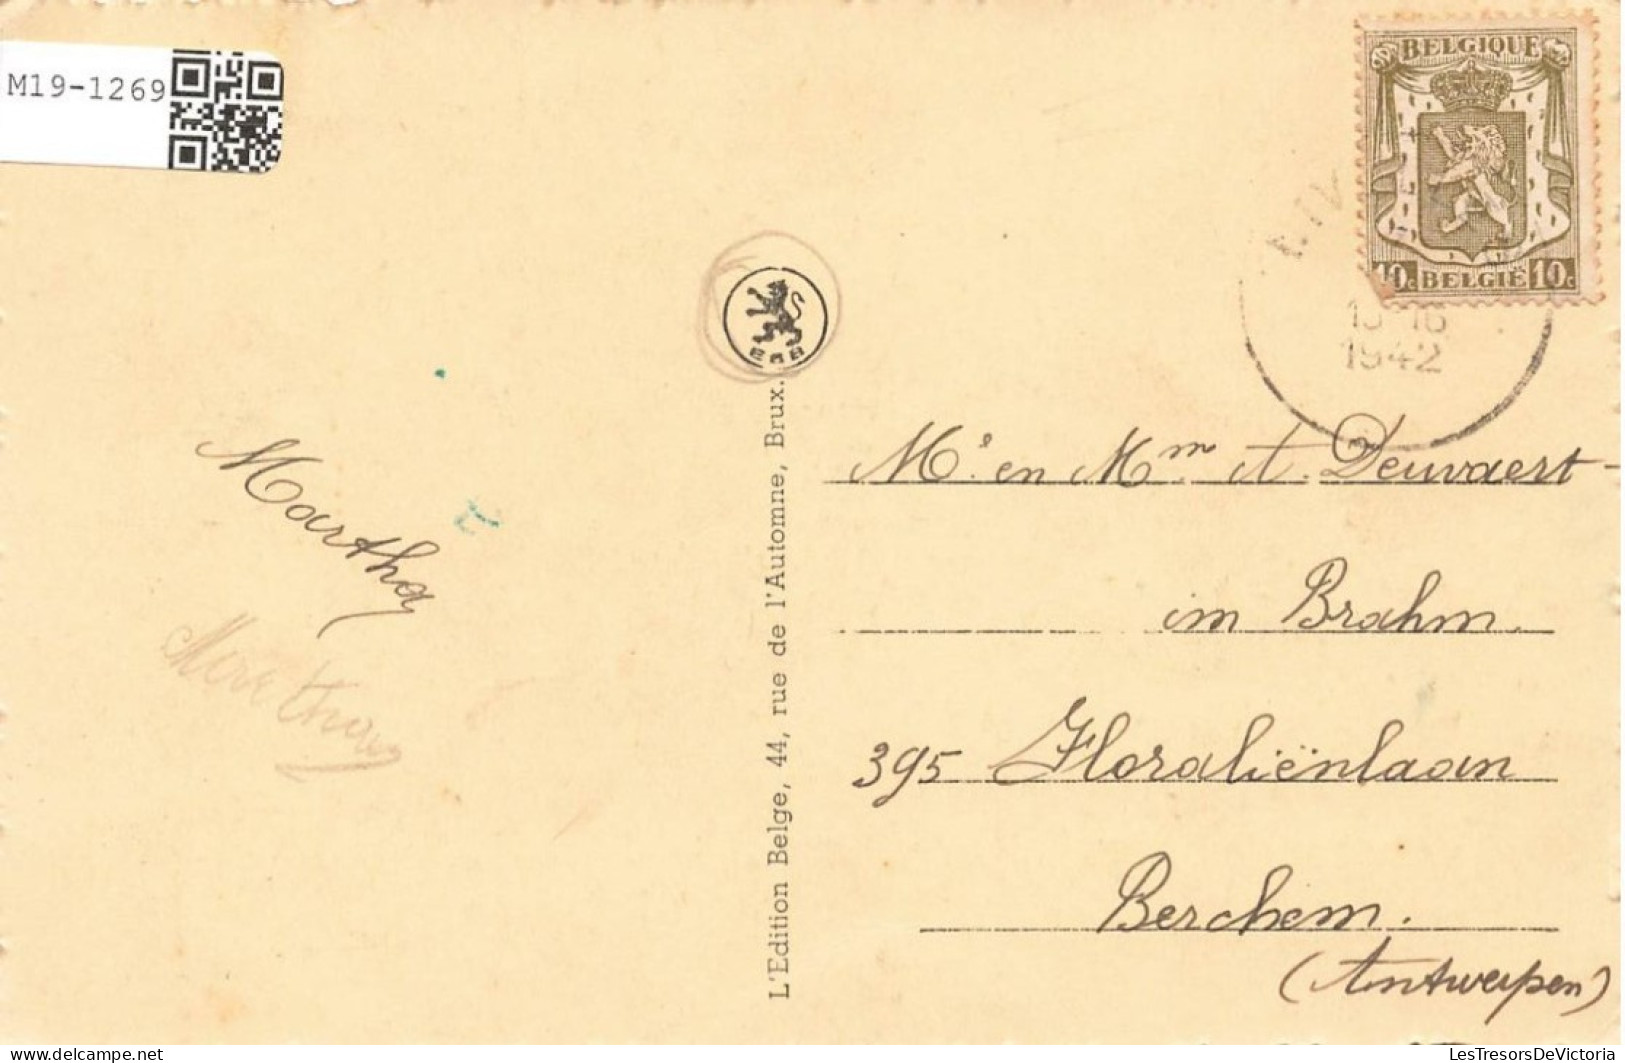 M19-1269
BELGIQUE
10c BELGIË 10c
15-16
1942
Martha
L'Edition Belge, 44, rue de l'Automne, Brux.
Mr. en Mm. A. Deuvaert-
im Brahm.
395 Floraliënlaan
Berchem.
(Antwerpen)
LesTresorsDeVictoria
delcampe.net